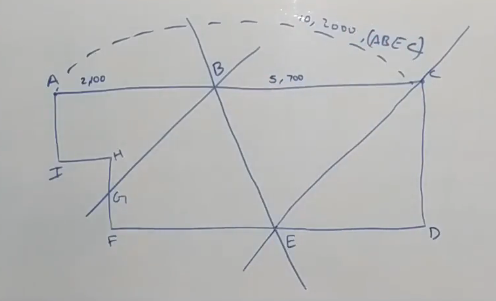 2000, (ABEC)
A 2,100 B 5,700 C
I H
G
F E D